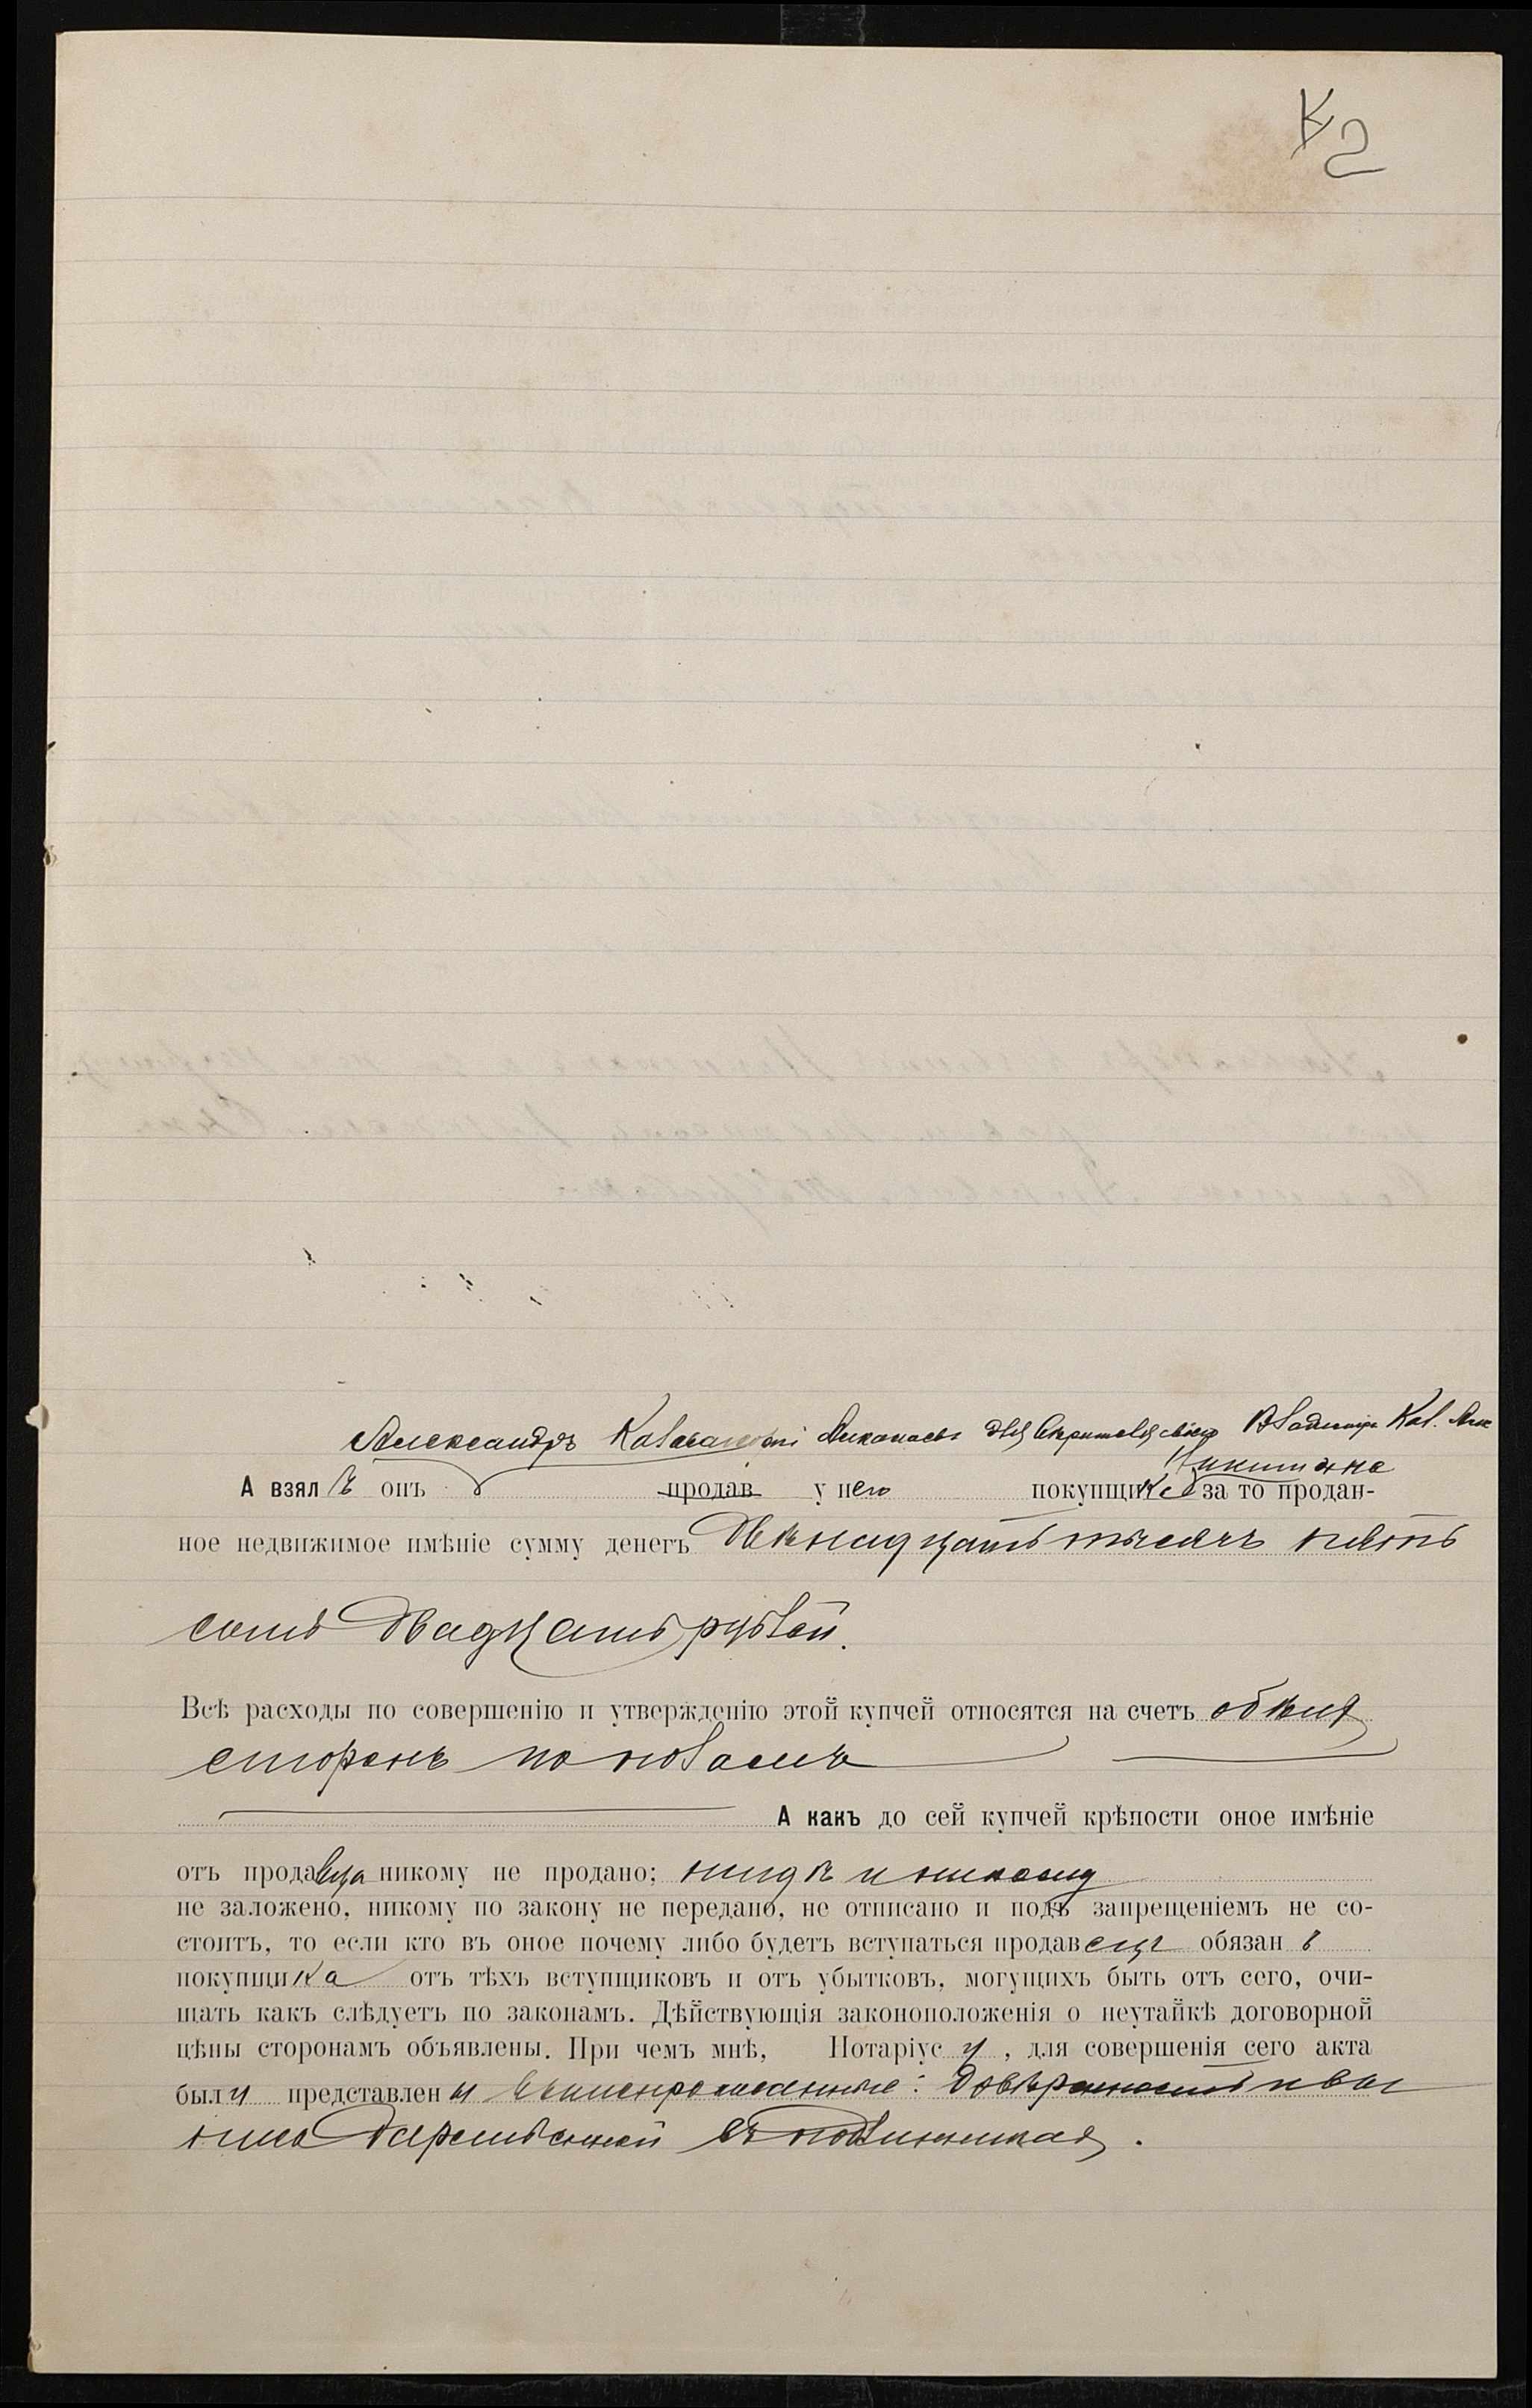 К 2
Александръ
А взялъ онъ продав у него покупщика за то продан-
ное недвижимое имѣніе сумму денегъ Двѣнадцать тысячъ пять
сотъ двадцать рублей.
Всѣ расходы по совершенію и утвержденію этой купчей относятся на счетъ обѣихъ
сторонъ пополамъ
А какъ до сей купчей крѣпости оное имѣніе
отъ продавца никому не продано; нигдѣ и никому
не заложено, никому по закону не передано, не отписано и подъ запрещеніемъ не со-
стоитъ, то если кто въ оное почему либо будетъ вступаться продавецъ обязан
покупщика отъ тѣхъ вступщиковъ и отъ убытковъ, могущихъ быть отъ сего, очи-
щать какъ слѣдуетъ по законамъ. Дѣйствующія законоположенія о неутайкѣ договорной
цѣны сторонамъ объявлены. При чемъ мнѣ, Нотаріусу, для совершенія сего акта
были представлены вышепрописанные: довѣренность и вы